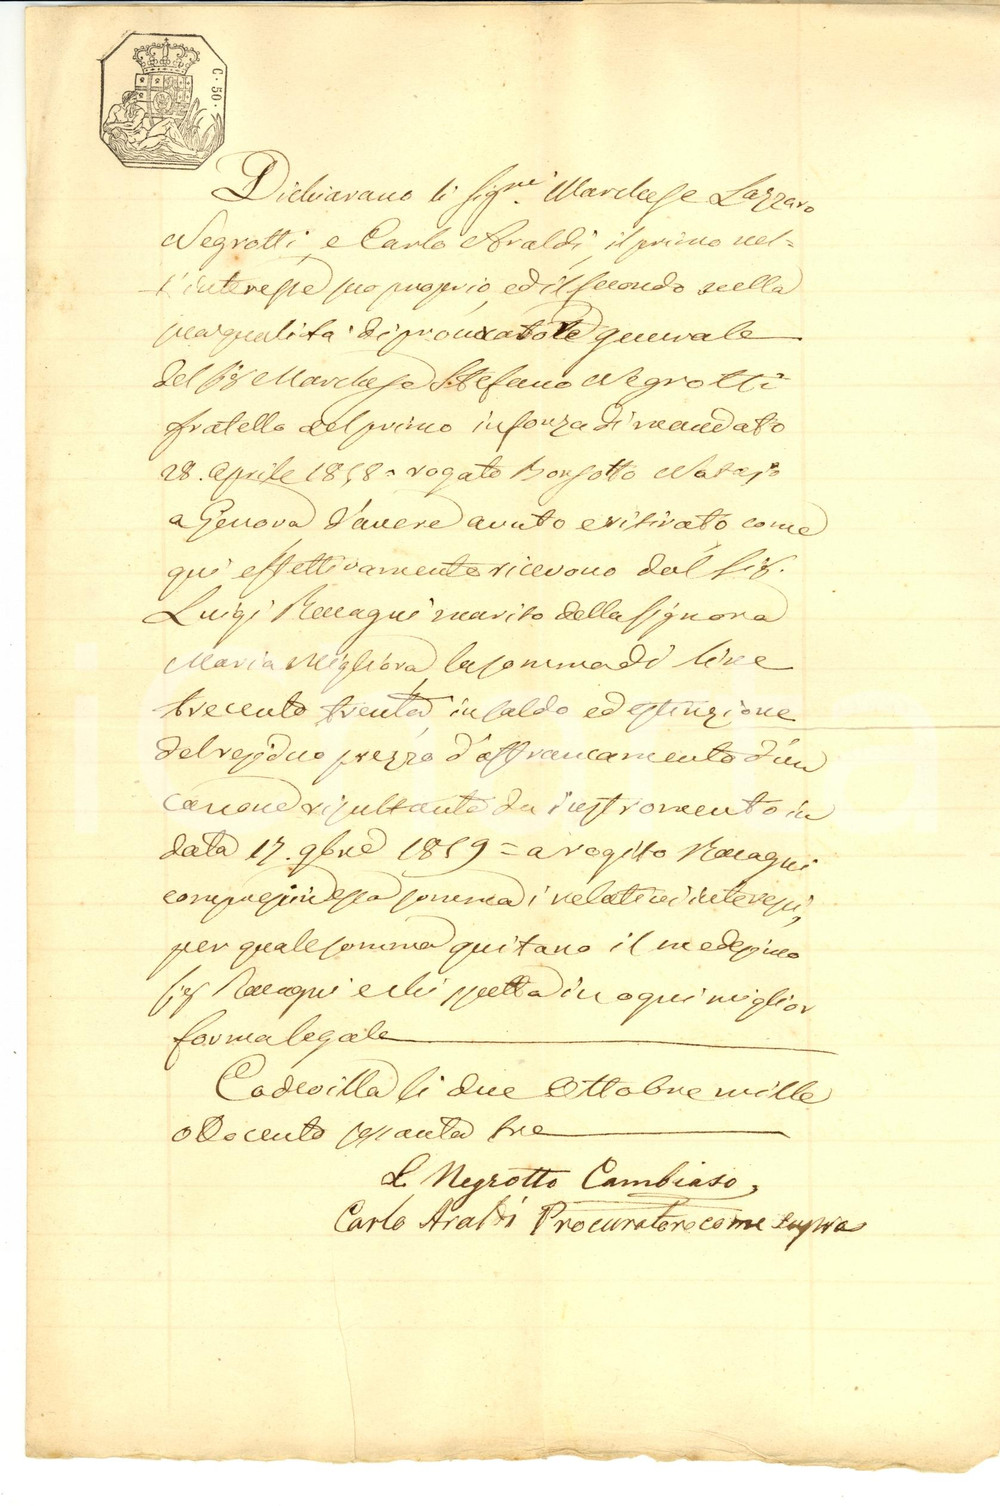 C. 50.
Dichiarano li Sig.ri Marchese Lazzaro
Negrotti, e Carlo Araldi, il primo nel=
l'interesse suo proprio, ed il secondo nella
sua qualità di procuratore generale
del Sig Marchese Steffano Negrotti
fratello del primo in forza di mandato
28. Aprile 1858= rogato Borsotto Notajo
a Genova d'avere avuto e ritirato come
qui effettivamente ricevono dal Sig.
Luigi Racagni marito della Signora
Maria Migliora la somma di lire
trecento trenta in saldo ed estinzione
del residuo prezzo d'affrancamento d'un
canone risultante da instromento in
data 17. 9bre 1859= a rogito Racagni
compresi in essa somma i relativi interessi,
per quale somma quitano il medesimo
Sig Racagni e chi spetta in ogni miglior
forma legale
Codevilla li due Ottobre mille
ottocento sessanta tre
L Negrotto Cambiaso,
Carlo Araldi Procuratore come sopra